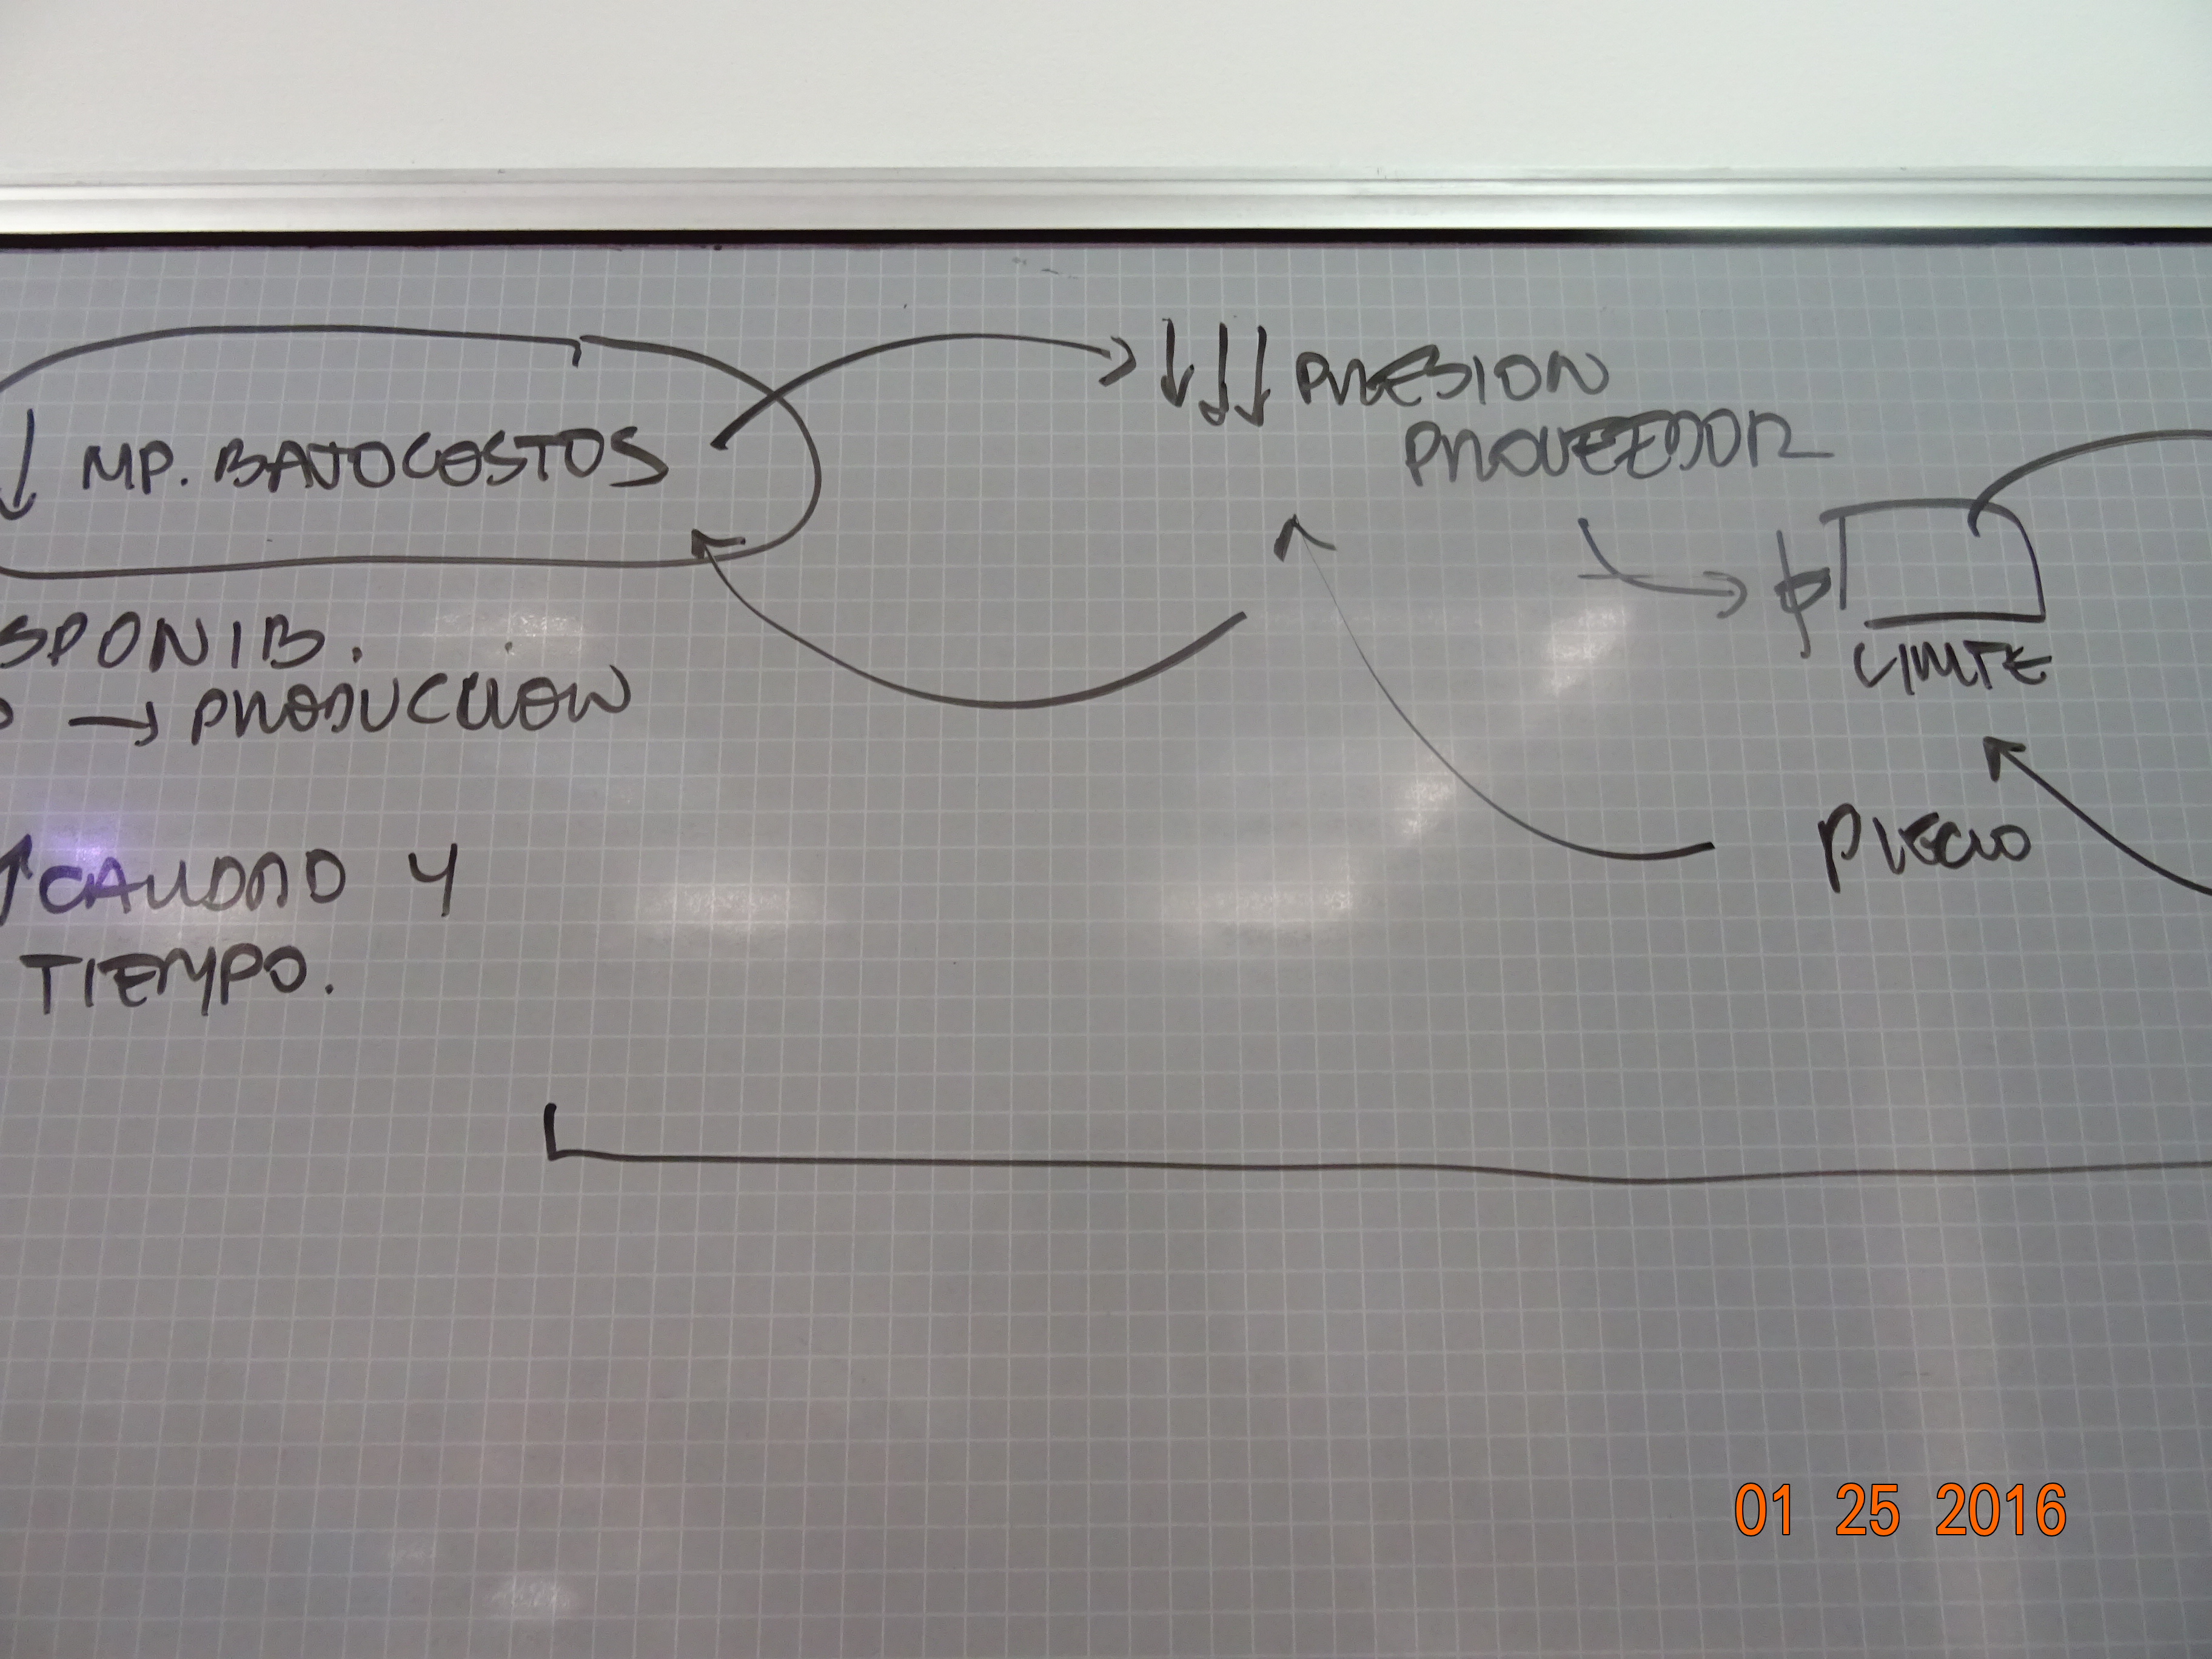 ↓ MP. BAJO COSTOS
↓↓↓ PRESION
PROVEEDOR
LIMITE
SPONIB.
→ PRODUCCION
PRECIO
↑ CALIDAD Y
TIEMPO.
01 25 2016